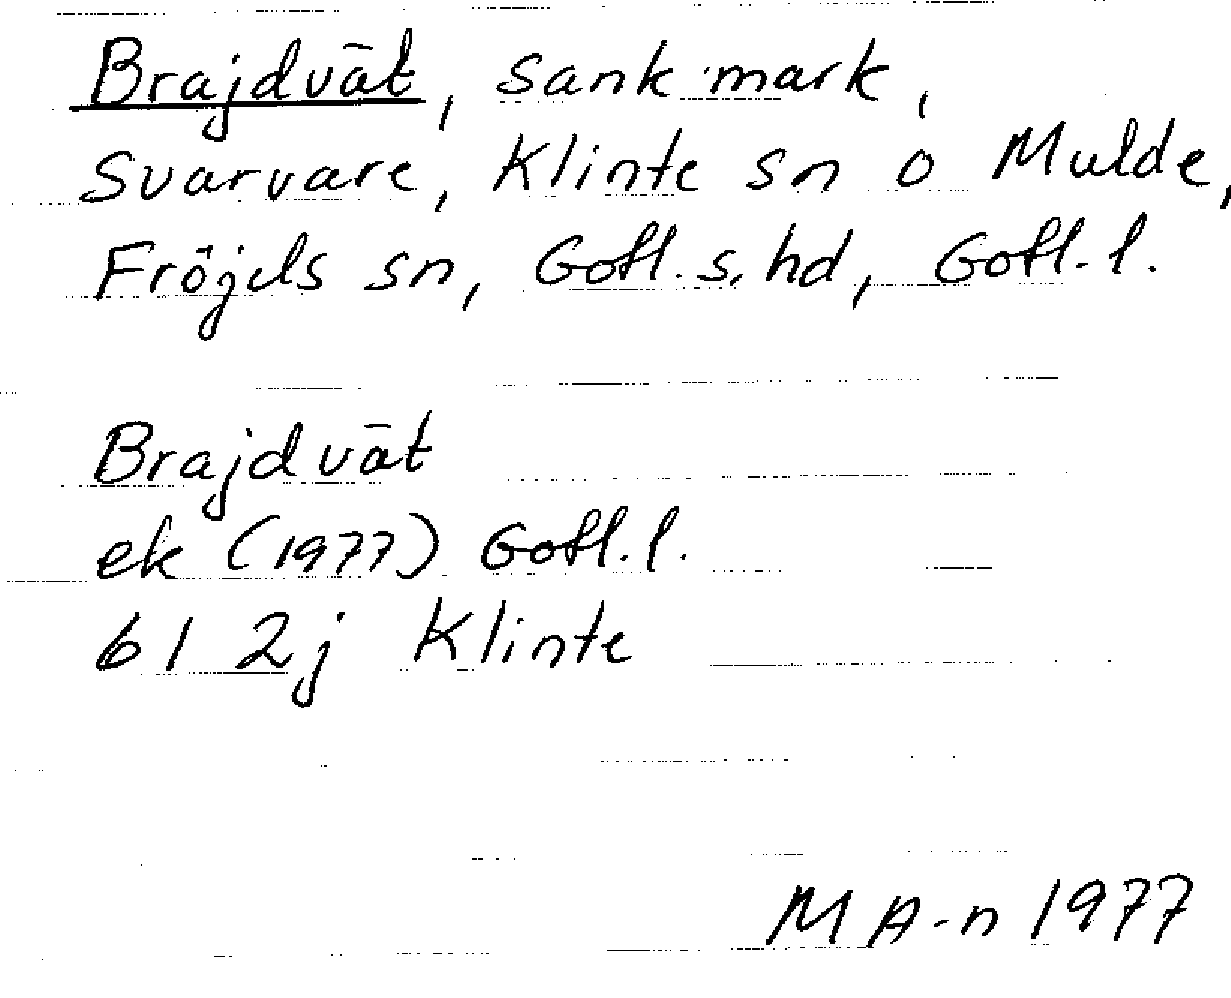 Brajdvāt, sank mark,
Svarvare, Klinte sn o Mulde,
Fröjels sn, Gotl. s. hd, Gotl. l.
Brajdvāt
ek (1977) Gotl. l.
61 2j Klinte
M A-n 1977